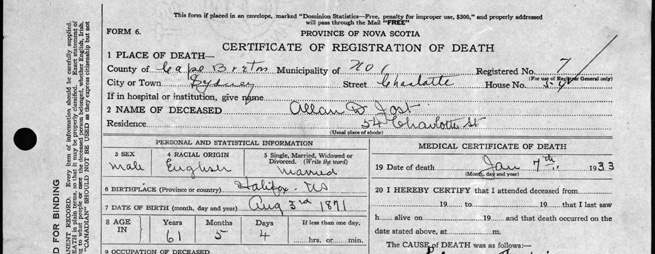 This form if placed in an envelope, marked "Dominion Statistics—Free, penalty for improper use, $300," and properly addressed
will pass through the Mail "FREE"
FORM 6.
PROVINCE OF NOVA SCOTIA
CERTIFICATE OF REGISTRATION OF DEATH
1 PLACE OF DEATH—
County of Cape Breton Municipality of No 1 Registered No. 7
(For use of Registrar General only)
City or Town Sydney Street Charlotte House No. 54
If in hospital or institution, give name
2 NAME OF DECEASED Allan D Jost
Residence 54 Charlotte St
(Usual place of abode)
PERSONAL AND STATISTICAL INFORMATION
3 SEX
male
4 RACIAL ORIGIN
English
5 Single, Married, Widowed or
Divorced. (Write the word)
married
6 BIRTHPLACE (Province or country) Halifax NS
7 DATE OF BIRTH (month, day and year) Aug 3rd 1871
8 AGE IN
Years
61
Months
5
Days
4
If less than one day.
hrs. or min.
9 OCCUPATION OF DECEASED
MEDICAL CERTIFICATE OF DEATH
19 Date of death Jan 7th 1933
(Month, day and year)
20 I HEREBY CERTIFY that I attended deceased from
19 to 19 that I last saw
h alive on 19 and that death occurred on the
date stated above, at m.
The CAUSE OF DEATH was as follows:
D FOR BINDING
ANENT RECORD. Every item of information should be carefully supplied.
"CANADIAN" SHOULD NOT BE USED as they express citizenship but not